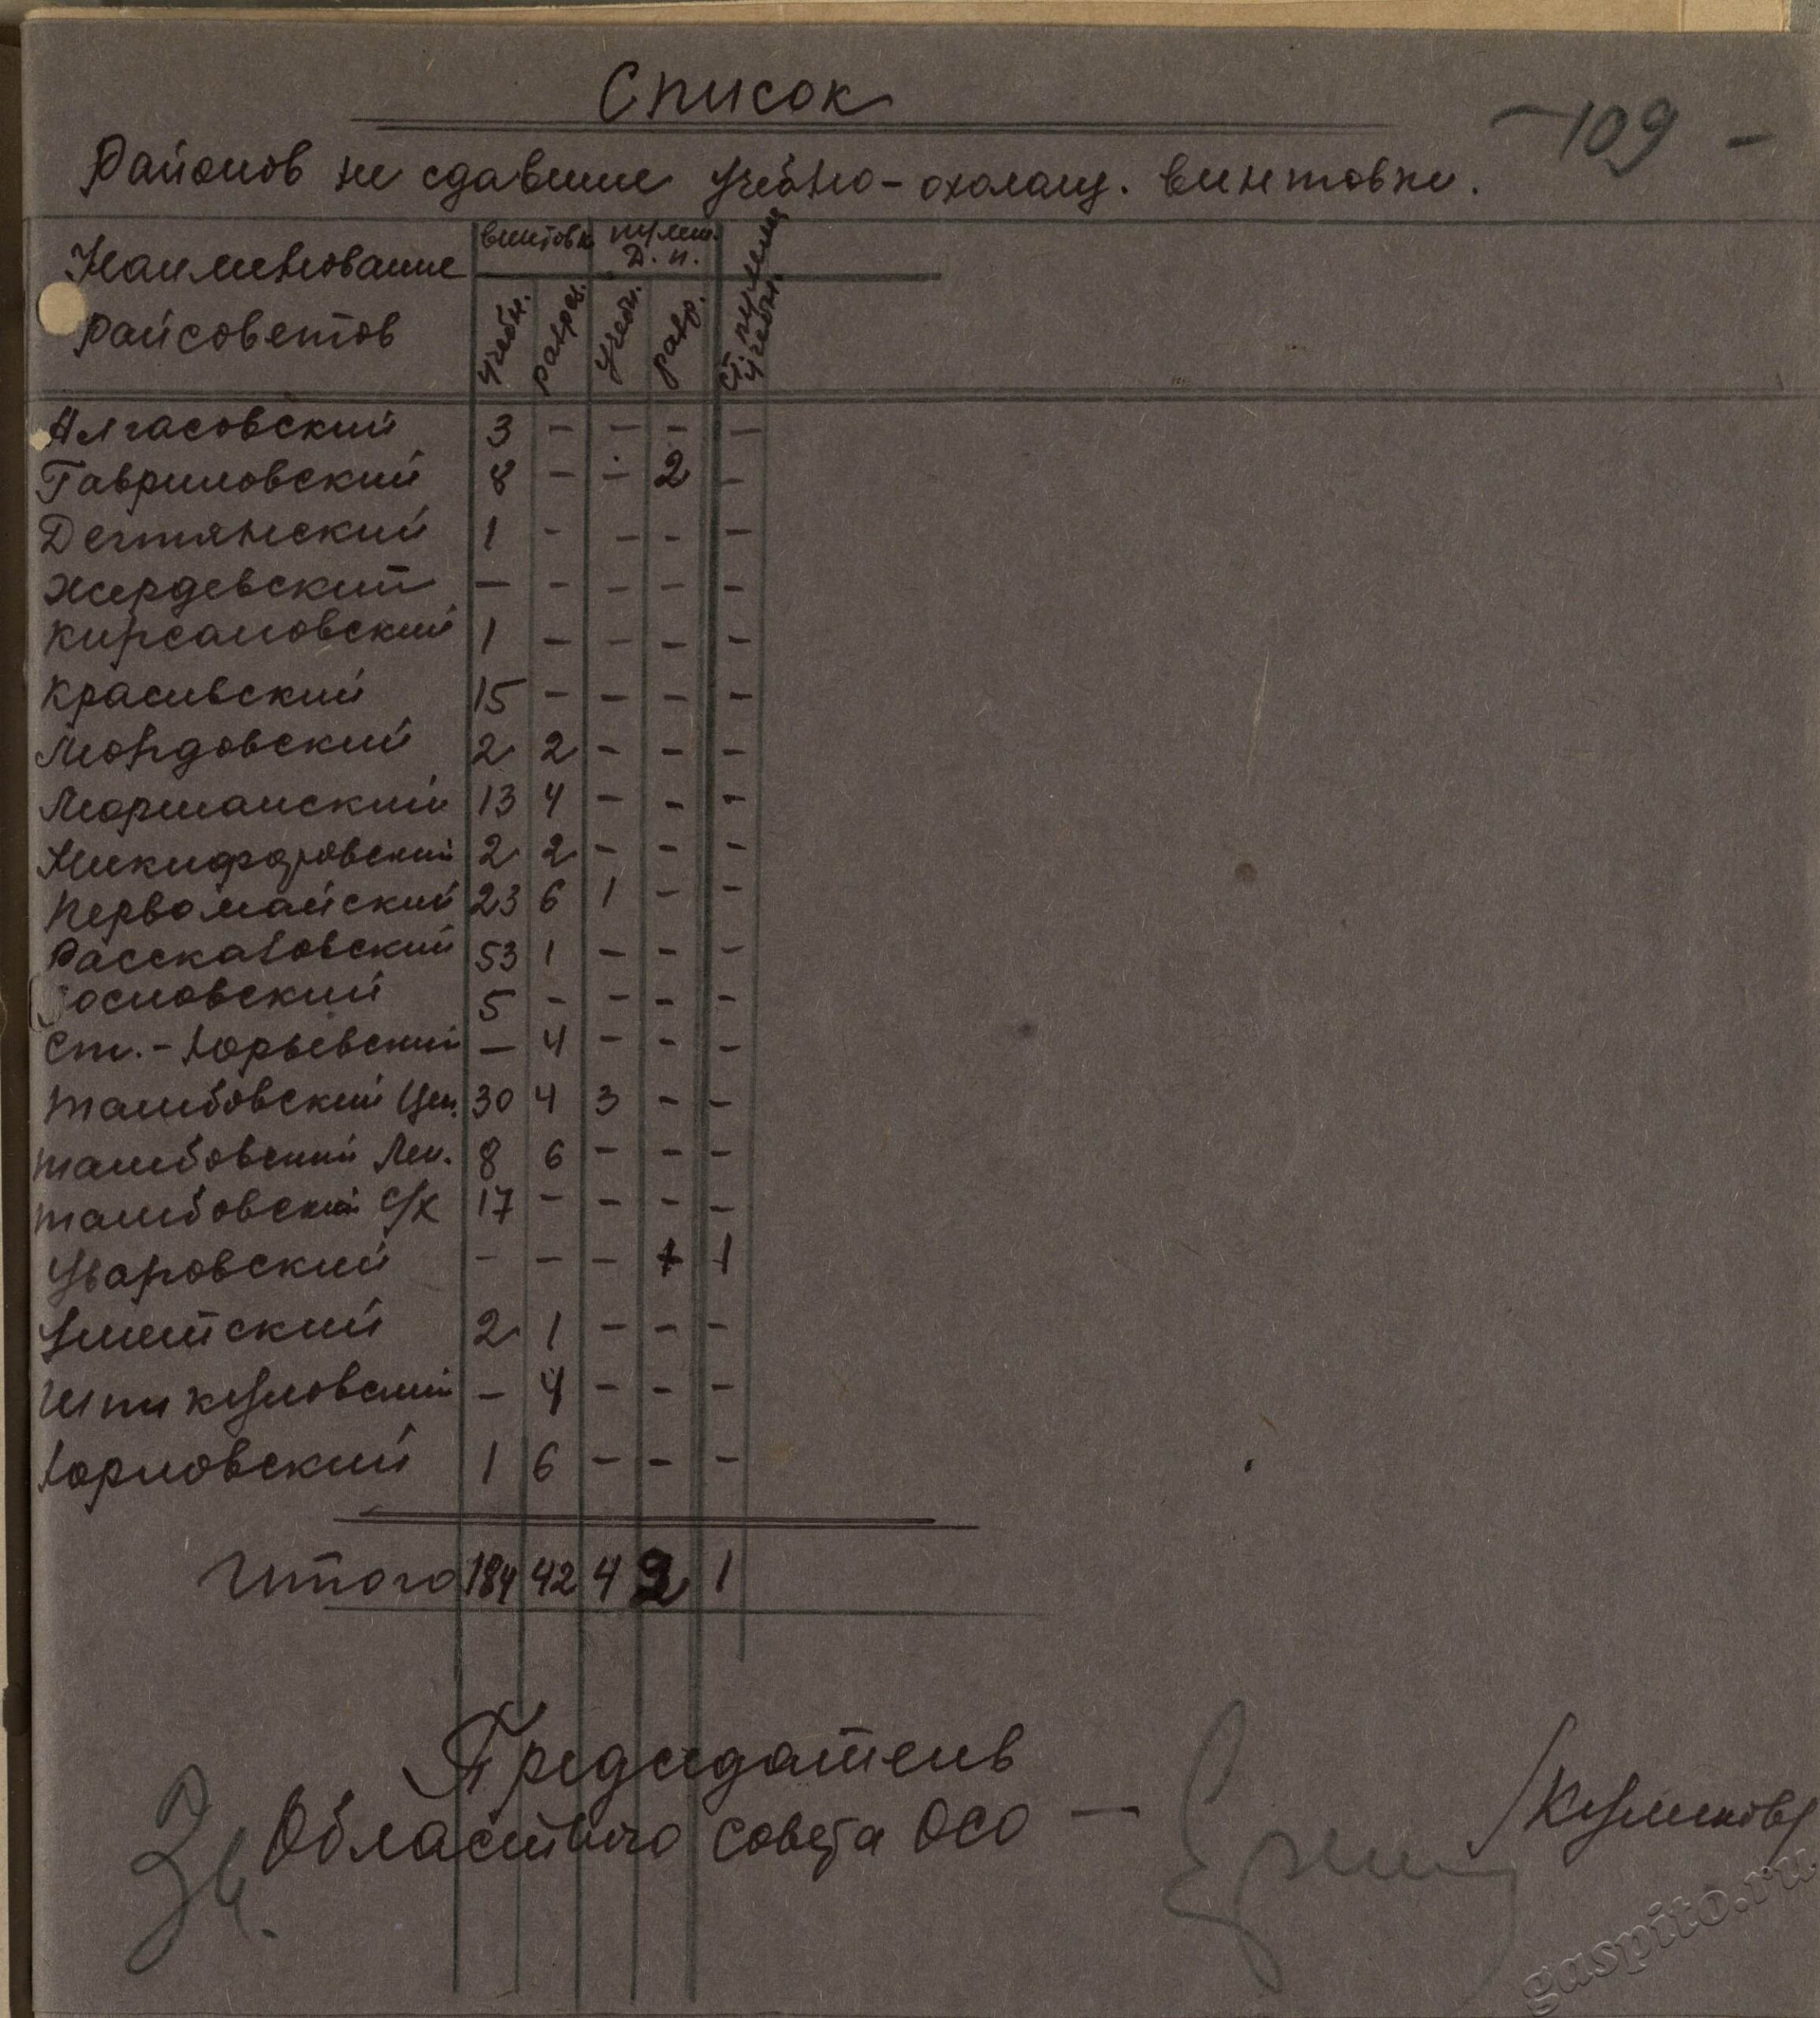 Список
-109-
Районов не сдавшие учебно-охолащ. винтовки.
Наименование райсоветов
винтовк пулем. Д.п. ст. пулемет учебн.
учебн. разрез. учебн. разр.
Алгасовский 3 - - - -
Гавриловский 8 - - 2 -
Дегтянский 1 - - - -
Жердевский - - - - -
Кирсановский 1 - - - -
Красивский 15 - - - -
Мордовский 2 2 - - -
Моршанский 13 4 - - -
Никифоровский 2 2 - - -
Первомайский 23 6 1 - -
Рассказовский 53 1 - - -
Сосновский 5 - - - -
Ст.-Юрьевский - 4 - - -
Тамбовский Цен. 30 4 3 - -
Тамбовский Лен. 8 6 - - -
Тамбовский С/х 17 - - - -
Уваровский - - - 1
Уметский 2 1 - - -
Шпикуловский - 4 - - -
Юрловский 1 6 - - -
Итого 184 42 4 2 1
Председатель
Областного совета ОСО - /Куликов/
gaspito.ru